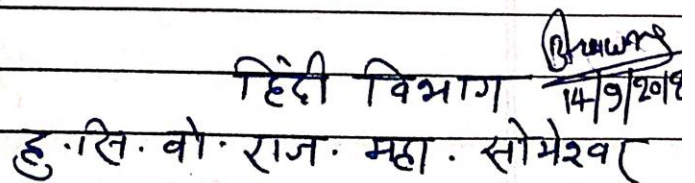 हिंदी विभाग 14/9/2018
हु.सि.बो.राज.महा.सोमेश्वर